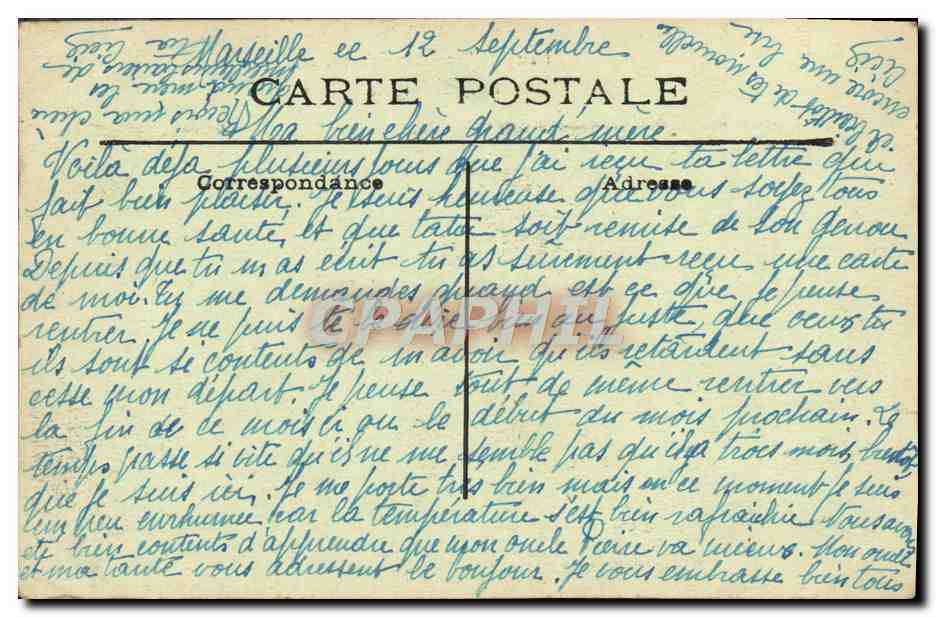 Marseille ce 12 Septembre
CARTE POSTALE
Ma bien chère Grand'mère
Voilà déja plusieurs jours que j'ai reçu ta lettre qui
Correspondance
Adresse
fait bien plaisir. Je suis heureuse que vous soyez tous
en bonne santé, et que tata soit remise de son genou
Depuis que tu m'as écrit tu as surement reçu une carte
de moi. Tu me demandes quand est ce que je pense
rentrer je ne puis te le dire bien au juste, que veux tu
ils sont si contents de m'avoir qu'ils retardent sans
cesse mon départ. Je pense tout de même rentrer vers
la fin de ce mois ci ou le début du mois prochain. Le
temps passe si vite qu'il ne me semble pas qu'il y a trois mois bientôt
que je suis ici. Je me porte très bien mais en ce moment je suis
un peu enrhumée car la température s'est bien rafraichie. Nous avons
été bien contents d'apprendre que mon oncle Pierre va mieux. Mon oncle
et ma tante vous adressent le bonjour. Je vous embrasse bien tous
Reçois ma chère
encore une
de tes nouvelles
CPAPHIL